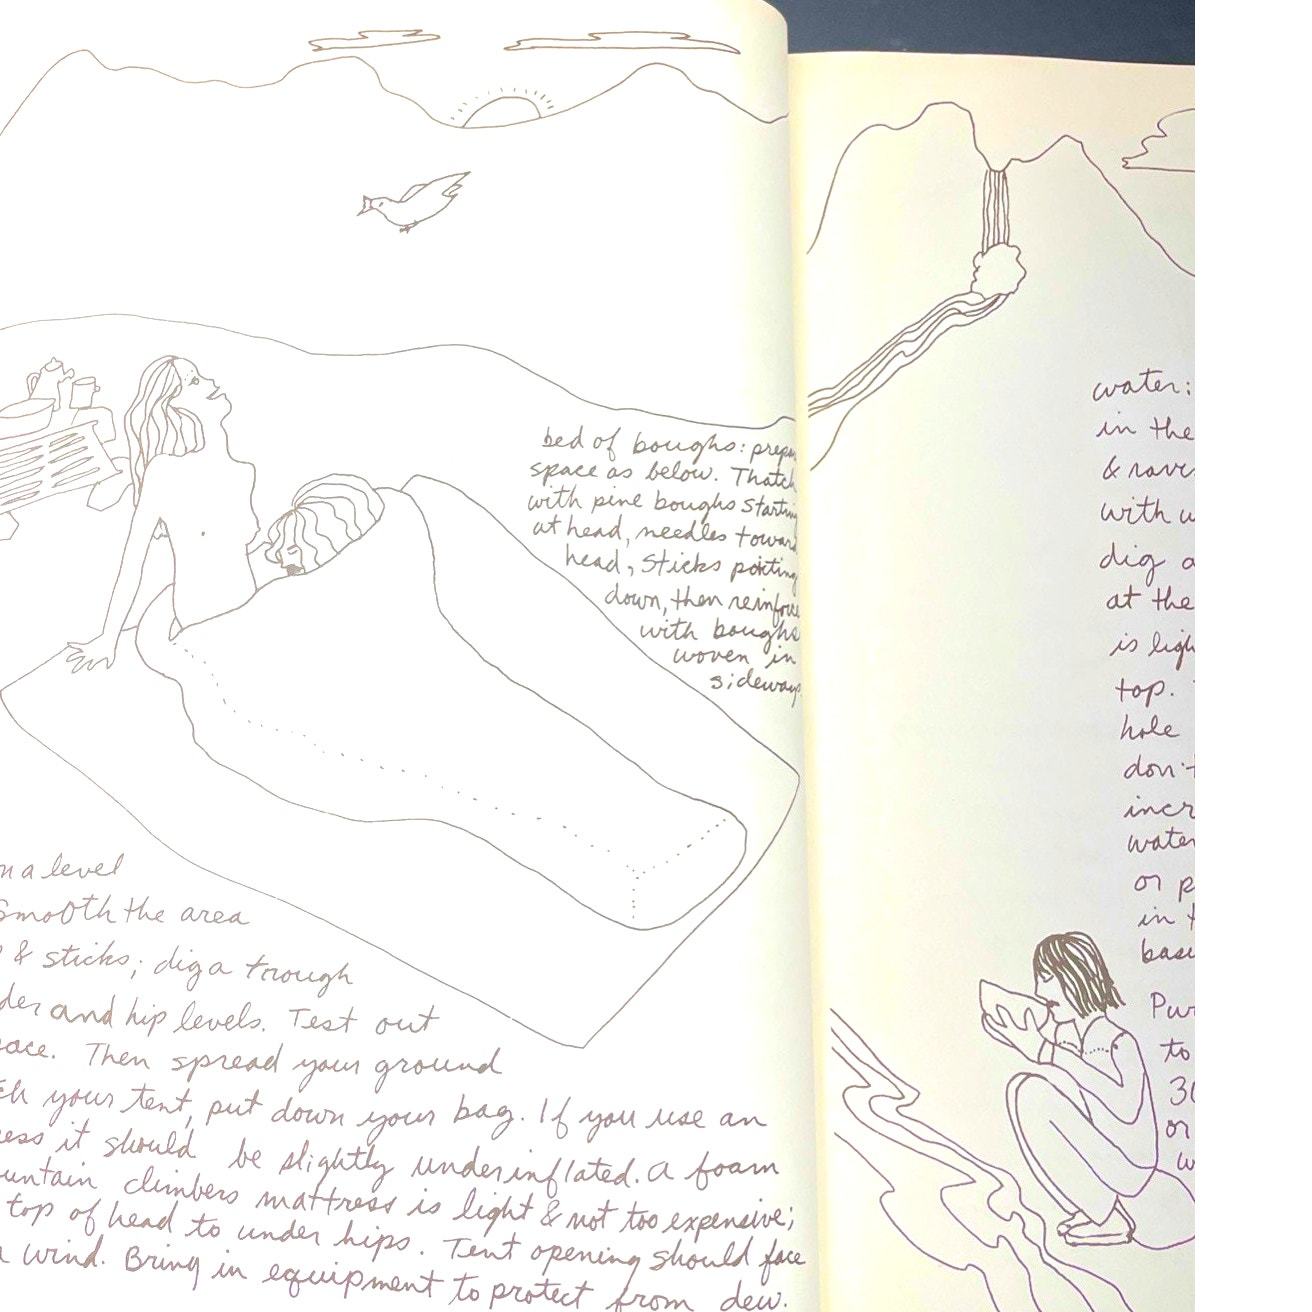 bed of boughs: prepa
space as below. Thatch
with pine boughs starting
at head, needles toward
head, sticks pointing
down, then reinforce
with boughs
woven in
sideways
n a level
smooth the area
& sticks; dig a trough
der and hip levels. Test out
ace. Then spread your ground
ch your tent, put down your bag. If you use an
ess it should be slightly underinflated. a foam
untain climbers mattress is light & not too expensive;
top of head to under hips. Tent opening should face
wind. Bring in equipment to protect from dew.
water:
in the
& rav
with w
dig a
at the
is ligh
top.
hole
don't
incr
water
or p
in t
base
Pur
to
30
or
w